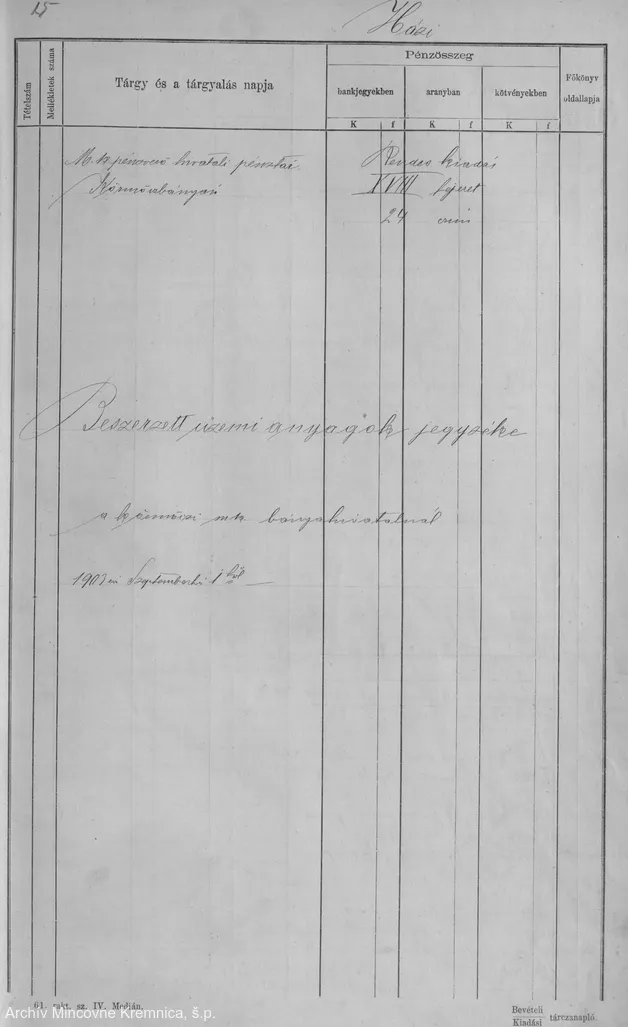 15
Házi
Tételszám
Mellékletek száma
Tárgy és a tárgyalás napja
Pénzösszeg
bankjegyekben
aranyban
kötvényekben
Főkönyv
oldallapja
K f K f K f
M. k. pénzverő hivatali pénztár Rendes kiadás
Körmöczbányán XVIII fejezet
24 czím
Beszerzett üzemi anyagok jegyzéke
a körmöczi m. k. bányahivatalnál
1903 évi Szeptemberhó 1 től
61. rakt. sz. IV. Medján.
Bevételi
Kiadási tárczanapló.
Archív Mincovne Kremnica, š.p.